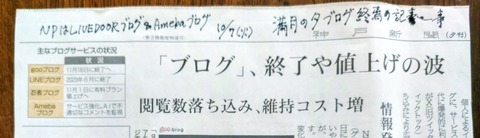 NPはLIVEDOORブログ&Amebaブログ 10/7(火) 満月の夕ブログ終焉の記事
神戸新聞 (夕刊)
主なブログサービスの状況
状況
gooブログ 11月18日に終了へ
LINEブログ 2023年6月に終了
忍者ブログ 11月1日に有料プラン値上げへ
Amebaブログ サービス強化、AIで不適切なコメントを監視
「ブログ」、終了や値上げの波
閲覧数落ち込み、維持コスト増
情報発